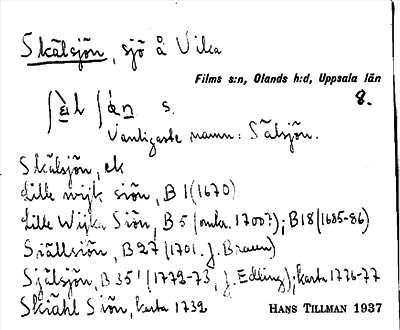 Skälsjön, sjö å Vika
Films s:n, Olands h:d, Uppsala län
8.
s.
Vanligaste namn: Sälsjön.
Skälsjön, ek
Lille wijk siön, B 1 (1670)
Lille Wijka Siön, B 5 (omkr. 1700?); B18 (1685-86)
Siällsiön, B 27 (1701. J. Braun)
Själsjön, B 35¹ (1772-73, J. Edling), karta 1776-77
Skiähl Siön, karta 1732
HANS TILLMAN 1937